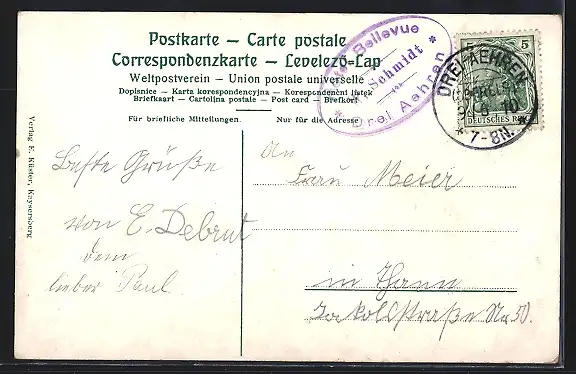 Postkarte – Carte postale
Correspondenzkarte – Levelező-Lap
Weltpostverein – Union postale universelle
Dopisnice – Karta korespondencyjna – Korespondenční lístek
Briefkaart – Cartolina postale – Post card – Brefkort
Für briefliche Mitteilungen.
Nur für die Adresse
Bellevue
Schmidt
* Drei Aehren *
5 5
DREI-AEHREN
10
* 7-8N. *
DEUTSCHES REICH
Verlag E. Küster, Kaysersberg
Beste Grüße
von E. Debrut
dem
lieber Paul
An
Frau Meier
in Thann
straße No 50.